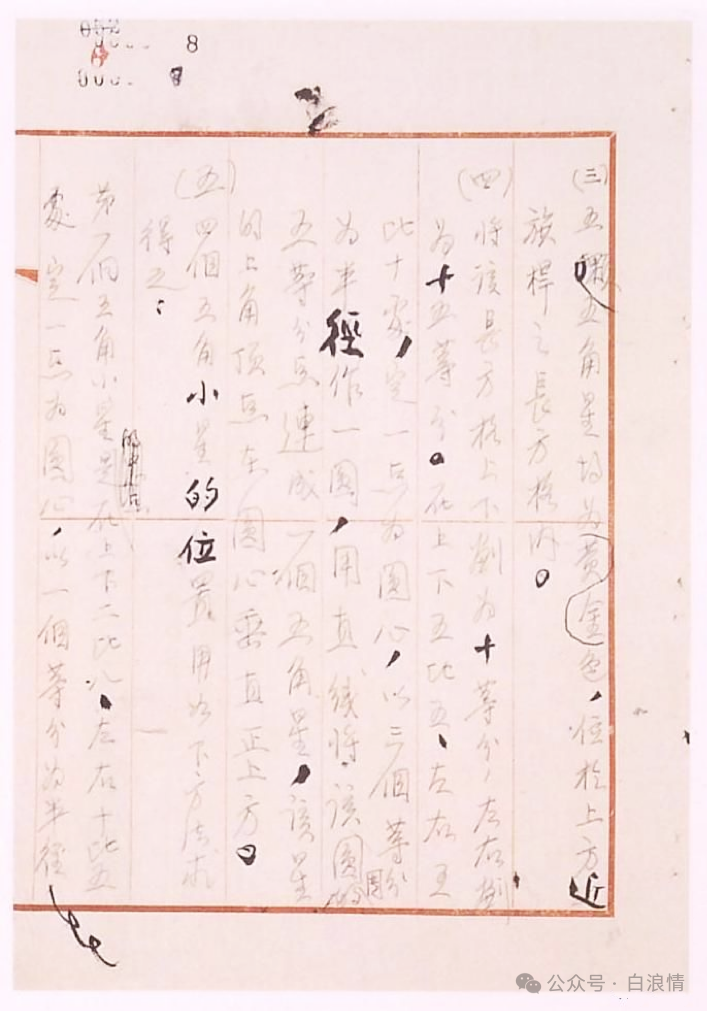 8
(三)五顆五角星均为黄金色,位於上方近
旗桿之長方格内。
(四)将該長方格上下劃为十等分,左右劃
为十五等分。在上下五比五、左右五
比十處,定一点为圆心,以三個等分
为半徑作一圆,用直线将該圆周的
五等分点連成一個五角星,該星
的上角顶点在圆心垂直正上方。
(五)四個五角小星的位置用如下方法求
得之:
第一個五角小星是在上下二比八、左右十比五
的中点
處定一点为圆心,以一個等分为半徑
公众号·白浪情